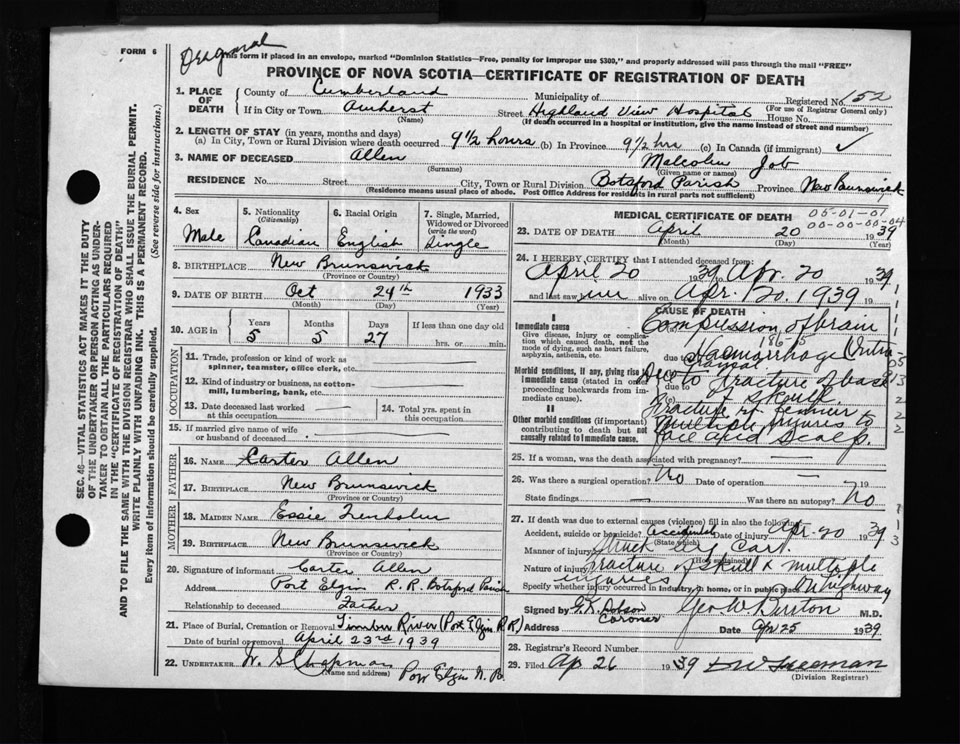 FORM 6
Original
This form if placed in an envelope, marked "Dominion Statistics—Free, penalty for improper use $300," and properly addressed will pass through the mail "FREE"
PROVINCE OF NOVA SCOTIA—CERTIFICATE OF REGISTRATION OF DEATH
1. PLACE OF DEATH County of Cumberland Municipality of Registered No. 152
(For use of Registrar General only)
If in City or Town Amherst Street Highland View Hospital House No.
(Name) (If death occurred in a hospital or institution, give the name instead of street and number)
2. LENGTH OF STAY (in years, months and days)
(a) In City, Town or Rural Division where death occurred 9½ hours (b) In Province 9½ hrs (c) In Canada (if immigrant) ✓
3. NAME OF DECEASED Allen Malcolm Job
(Surname) (Given name or names)
RESIDENCE No. Street City, Town or Rural Division Botsford Parish Province New Brunswick
(Residence means usual place of abode. Post Office Address for residents in rural parts not sufficient)
4. Sex Male
5. Nationality (Citizenship) Canadian
6. Racial Origin English
7. Single, Married, Widowed or Divorced (write the word) Single
8. BIRTHPLACE New Brunswick
(Province or Country)
9. DATE OF BIRTH Oct 24th 1933
(Month) (Day) (Year)
10. AGE in Years 5 Months 5 Days 27 If less than one day old
hrs. or min.
OCCUPATION
11. Trade, profession or kind of work as spinner, teamster, office clerk, etc.
12. Kind of industry or business, as cotton-mill, lumbering, bank, etc.
13. Date deceased last worked at this occupation
14. Total yrs. spent in this occupation
15. If married give name of wife or husband of deceased
FATHER
16. NAME Carter Allen
17. BIRTHPLACE New Brunswick
(Province or Country)
MOTHER
18. MAIDEN NAME Essie Trenholm
19. BIRTHPLACE New Brunswick
(Province or Country)
20. Signature of informant Carter Allen
Address Port Elgin R.R. Botsford Parish
Relationship to deceased Father
21. Place of Burial, Cremation or Removal Timber River (Port Elgin R R)
Date of burial or removal April 23rd 1939
22. UNDERTAKER W. S Chapman Port Elgin N.B
(Name and address)
MEDICAL CERTIFICATE OF DEATH
05-01-01
00-00-00-04
23. DATE OF DEATH April 20 1939
(Month) (Day) (Year)
24. I HEREBY CERTIFY that I attended deceased from:
April 20 1939 to Apr. 20 1939
and last saw him alive on Apr. 20. 1939
CAUSE OF DEATH
I
Immediate cause
Give disease, injury or complication which caused death, not the mode of dying, such as heart failure, asphyxia, asthenia, etc.
Compression of brain
due to Haemorrhage (Intra
Morbid conditions, if any, giving rise to immediate cause (stated in order proceeding backwards from immediate cause).
Due to fracture of base of skull
II
Other morbid conditions (if important) contributing to death but not causally related to immediate cause.
Fracture rt femur
Multiple injuries to
face and scalp.
25. If a woman, was the death associated with pregnancy?
26. Was there a surgical operation? No Date of operation 19
State findings Was there an autopsy? No
27. If death was due to external causes (violence) fill in also the following:
Accident, suicide or homicide? Accidental Date of injury Apr. 20 1939
(State which)
Manner of injury Struck by Car.
Nature of injury fracture of skull & multiple injuries
Specify whether injury occurred in industry, in home, or in public place On highway
Signed by Geo W Burton M.D.
Coroner
Address Date Apr 25 1939
28. Registrar's Record Number
29. Filed Ap 26 1939
(Division Registrar)
SEC. 46—VITAL STATISTICS ACT MAKES IT THE DUTY
OF THE UNDERTAKER OR PERSON ACTING AS UNDER-
TAKER TO OBTAIN ALL THE PARTICULARS REQUIRED
IN THE "CERTIFICATE OF REGISTRATION OF DEATH"
AND TO FILE THE SAME WITH THE DIVISION REGISTRAR WHO SHALL ISSUE THE BURIAL PERMIT.
WRITE PLAINLY WITH UNFADING INK. THIS IS A PERMANENT RECORD.
Every item of information should be carefully supplied. (See reverse side for instructions.)